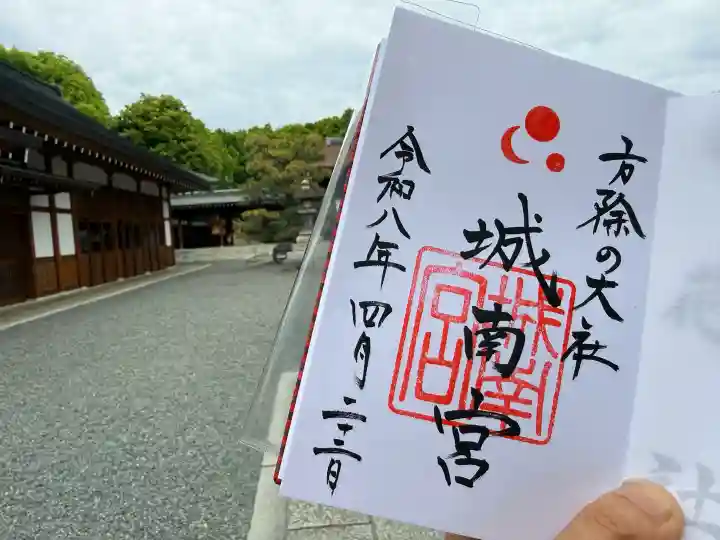 方除の大社
城南宮
令和八年四月二十三日